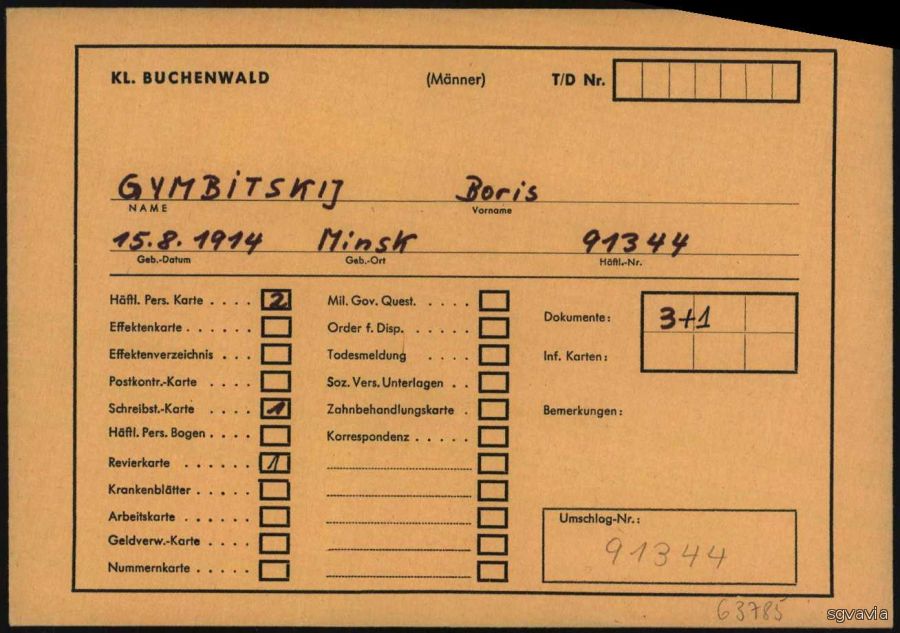 KL. BUCHENWALD (Männer) T/D Nr.
GYMBITSKIJ Boris
NAME Vorname
15.8.1914 Minsk 91344
Geb.-Datum Geb.-Ort Häftl.-Nr.
Häftl. Pers. Karte . . . . 2 Mil. Gov. Quest. . . . . .
Effektenkarte . . . . . . Order f. Disp. . . . . . .
Effektenverzeichnis . . . Todesmeldung . . . .
Postkontr.-Karte . . . . Soz. Vers. Unterlagen . .
Schreibst.-Karte . . . . 1 Zahnbehandlungskarte .
Häftl. Pers. Bogen . . . . Korrespondenz . . . . .
Revierkarte . . . . . . 1
Krankenblätter . . . . .
Arbeitskarte . . . . . .
Geldverw.-Karte . . . .
Nummernkarte . . . . .
Dokumente: 3+1
Inf. Karten:
Bemerkungen:
Umschlag-Nr.:
91344
63785
sgvavia